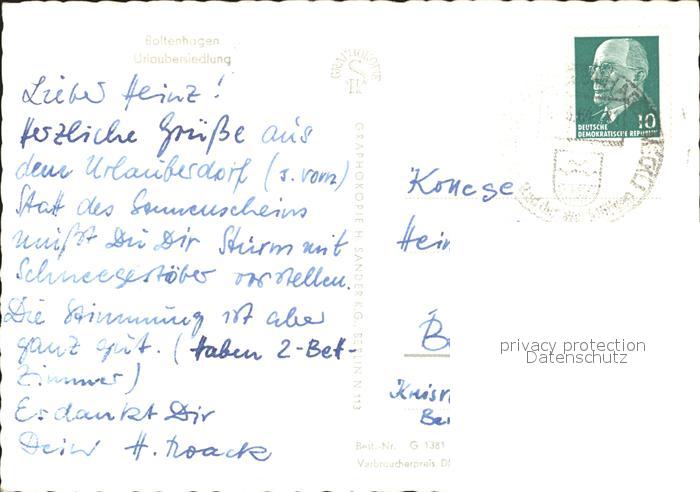 Boltenhagen
Urlaubersiedlung
Lieber Heinz!
Herzliche Grüße aus
dem Urlauberdorf (s. vorn)
Statt des Sonnenscheins
mußt Du Dir Sturm mit
Schneegestöber vorstellen.
Die Stimmung ist aber
ganz gut. (Haben 2-Bet-
Zimmer)
Es dankt Dir
Dein H. Noack
GRAPHOKOPIE
H S
GRAPHOKOPIE H. SANDER KG. BERLIN N 113
Best.-Nr. G 1381
Verbraucherpreis
10
DEUTSCHE
DEMOKRATISCHE REPUBLIK
Kollege
Hein
Be
Kreis
Ber
privacy protection
Datenschutz